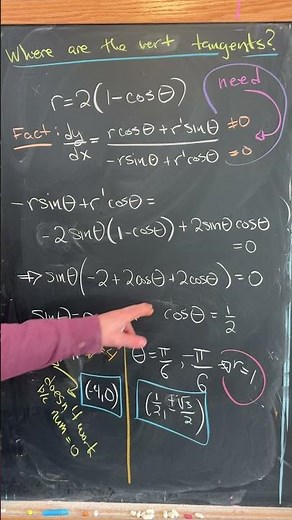 Where are the vert tangents?
r=2(1-cosθ)
need
Fact: dy/dx = (rcosθ+r'sinθ)/(-rsinθ+r'cosθ) ≠0 =0
-rsinθ+r'cosθ=
-2sinθ(1-cosθ)+2sinθcosθ
=0
⇒ sinθ(-2+2cosθ+2cosθ)=0
sinθ= cosθ=1/2
θ=π/6, -π/6 ⇒ r=1
(-4,0) (1/2, ±√3/2)
doesn't work
b/c num=0